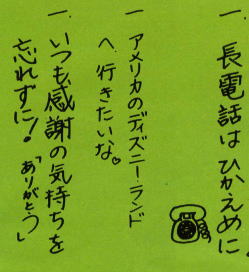 一、長電話はひかえめに
一 アメリカのディズニーランド
へ行きたいな。
一、いつも感謝の気持ちを
忘れずに!「ありがとう」